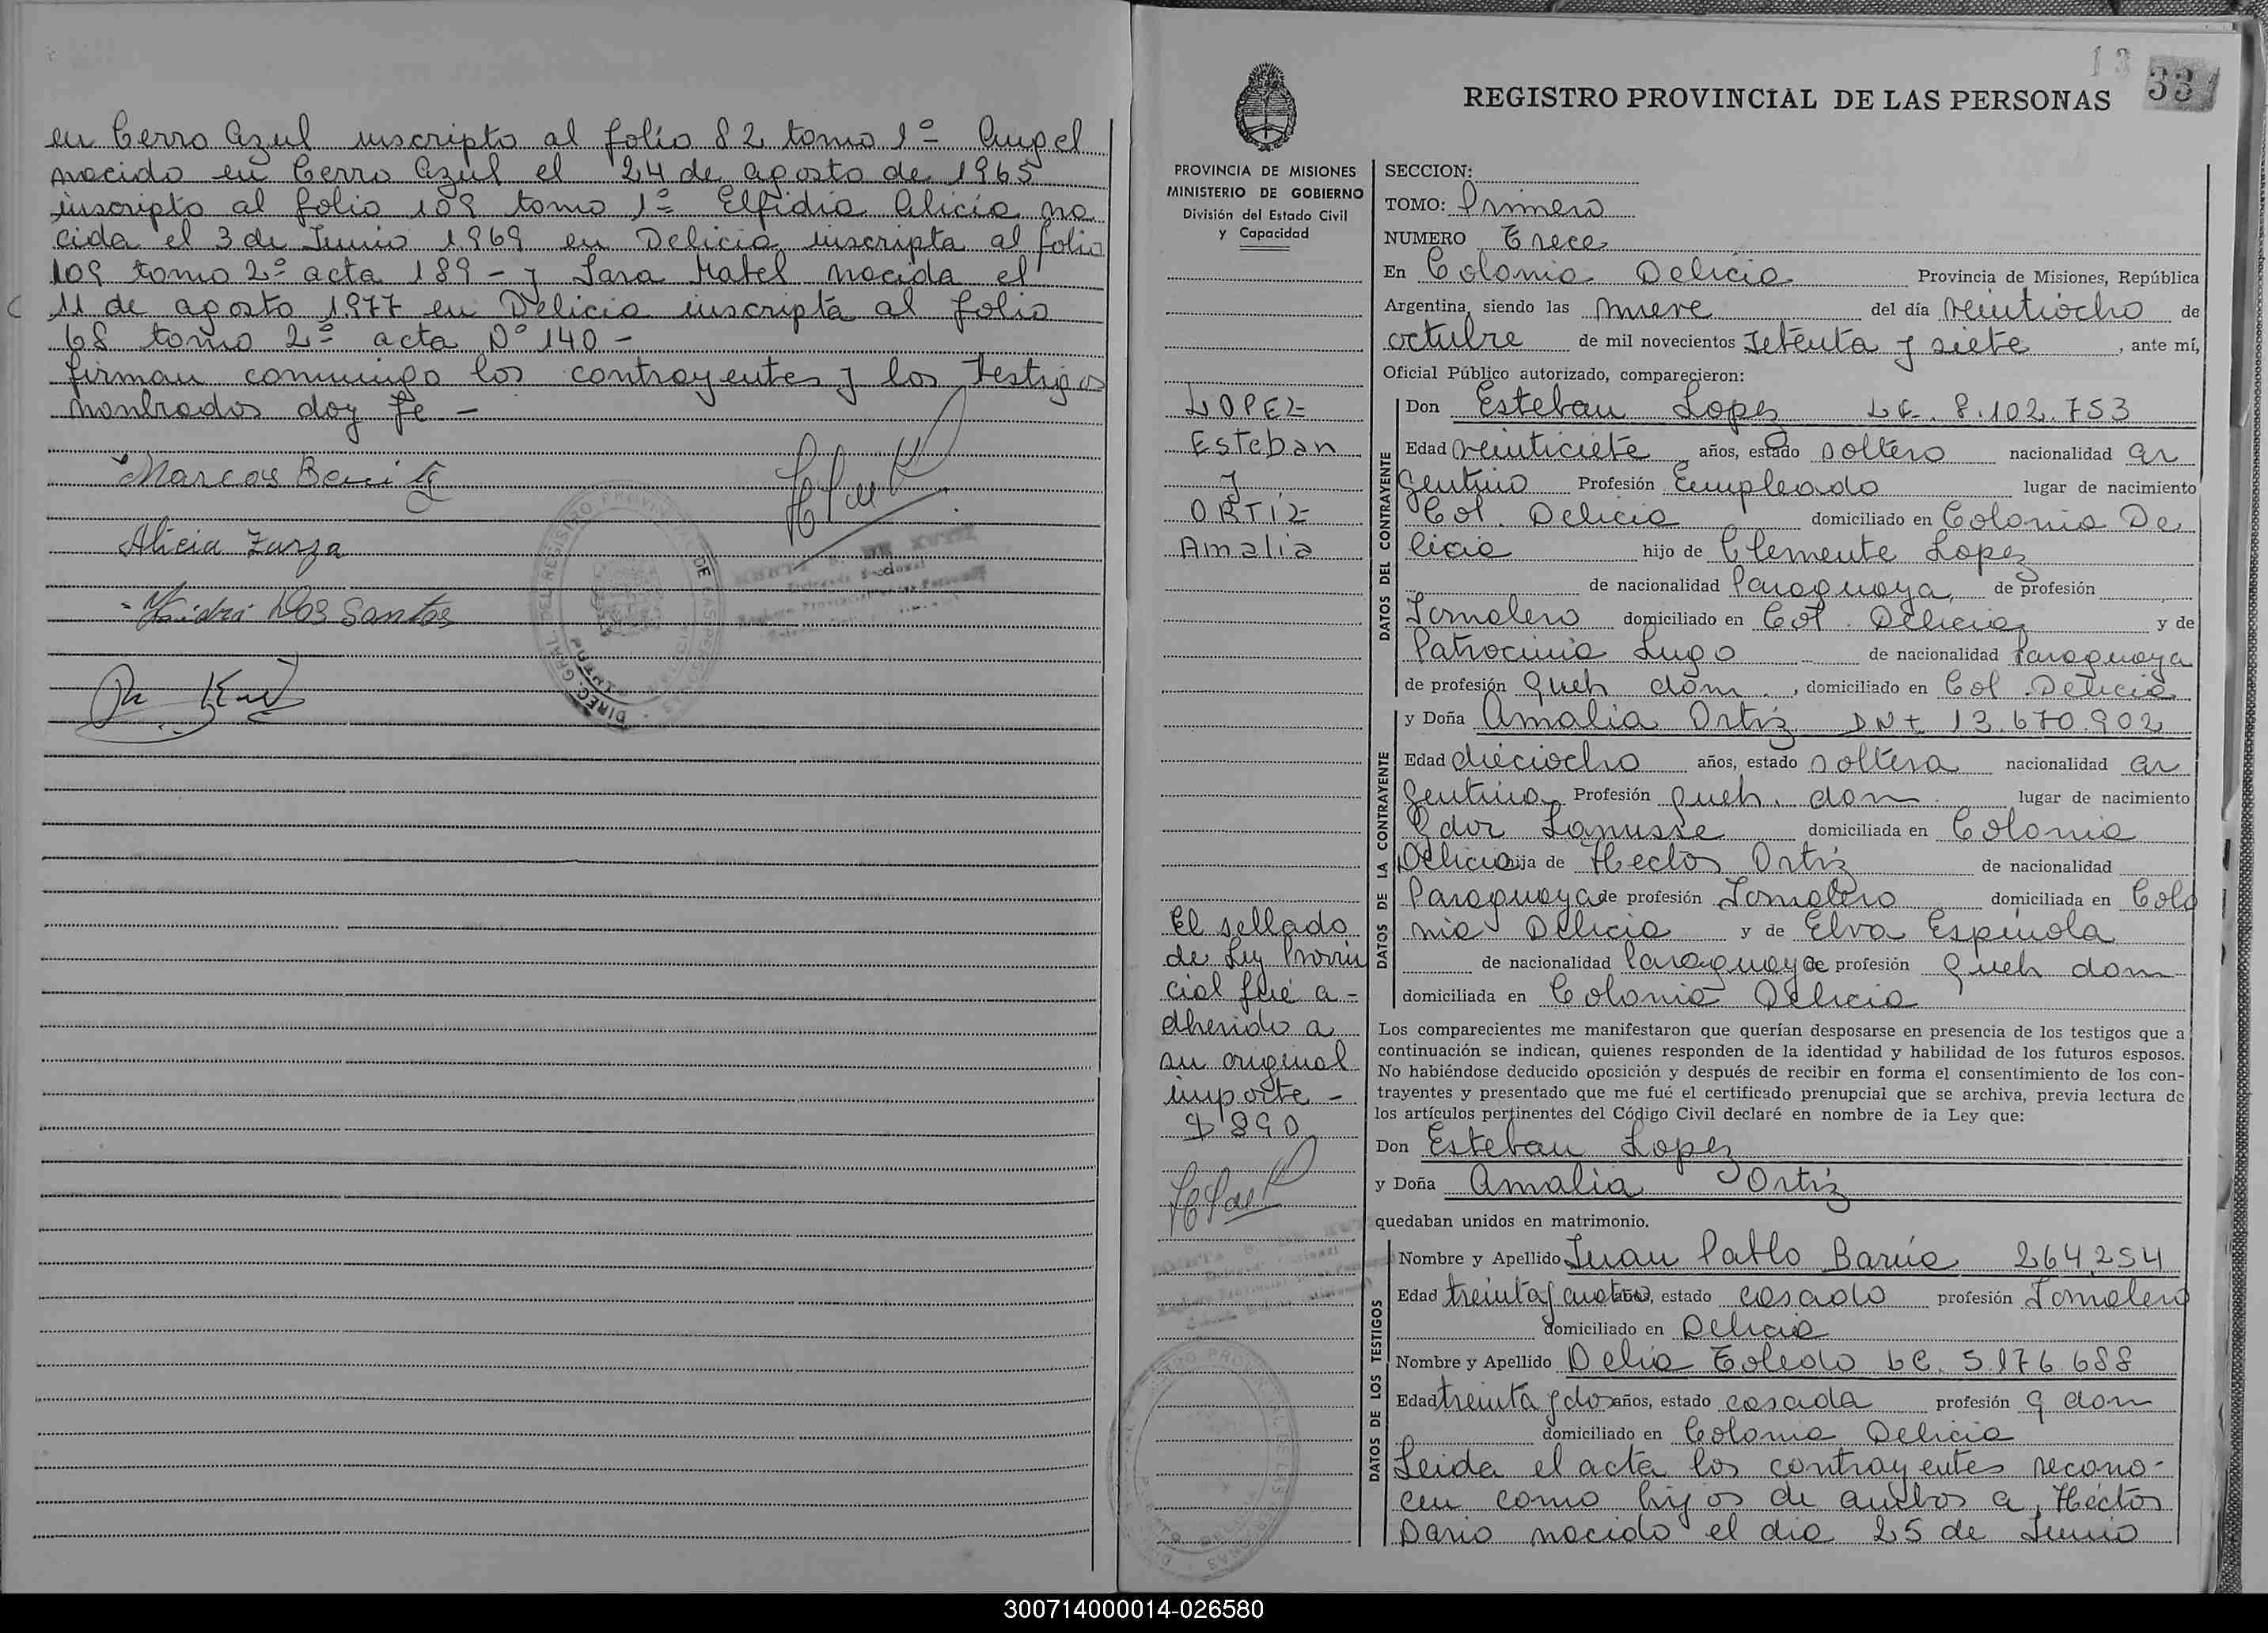 en Cerro Azul inscripto al folio 82 tomo 1º Angel
nacido en Cerro Azul el 24 de agosto de 1965
inscripto al folio 109 tomo 1º Elfidia Alicia na
cida el 3 de Junio 1969 en Delicia inscripta al folio
109 tomo 2º acta 189 - y Sara Mabel nacida el
11 de agosto 1977 en Delicia inscripta al folio
68 tomo 2º acta Nº 140 -
firman conmigo los contrayentes y los testigos
nonbrados doy fe -
Marcos Beni
Alicia Zarza
Dos Santos
13
331
REGISTRO PROVINCIAL DE LAS PERSONAS
PROVINCIA DE MISIONES
MINISTERIO DE GOBIERNO
División del Estado Civil
y Capacidad
LOPEZ
Esteban
y
ORTIZ
Amalia
El sellado
de Ley Provin
cial fué a-
dherido a
su original
importe -
$ 890
SECCION:
TOMO: Primero
NUMERO Trece
En Colonia Delicia Provincia de Misiones, República
Argentina, siendo las nueve del día veintiocho de
octubre de mil novecientos setenta y siete, ante mí,
Oficial Público autorizado, comparecieron:
DATOS DEL CONTRAYENTE
Don Esteban Lopez L.E. 8.102.753
Edad veinticiete años, estado soltero nacionalidad ar
gentino Profesión Empleado lugar de nacimiento
Col. Delicia domiciliado en Colonia De
licia hijo de Clemente Lopez
de nacionalidad Paraguaya, de profesión
Jornalero domiciliado en Col. Delicia y de
Patrocinia Lugo de nacionalidad Paraguaya
de profesión queh dom., domiciliado en Col. Delicia
DATOS DE LA CONTRAYENTE
y Doña Amalia Ortiz DNI 13.670.902
Edad dieciocho años, estado soltera nacionalidad ar
gentina Profesión queh. dom. lugar de nacimiento
Gdor Lanusse domiciliada en Colonia
Delicia hija de Hector Ortiz de nacionalidad
Paraguaya de profesión Jornalero domiciliada en Colo
nia Delicia y de Elva Espinola
de nacionalidad Paraguaya de profesión queh dom
domiciliada en Colonia Delicia
Los comparecientes me manifestaron que querían desposarse en presencia de los testigos que a
continuación se indican, quienes responden de la identidad y habilidad de los futuros esposos.
No habiéndose deducido oposición y después de recibir en forma el consentimiento de los con-
trayentes y presentado que me fué el certificado prenupcial que se archiva, previa lectura de
los artículos pertinentes del Código Civil declaré en nombre de ia Ley que:
Don Esteban Lopez
y Doña Amalia Ortiz
quedaban unidos en matrimonio.
DATOS DE LOS TESTIGOS
Nombre y Apellido Juan Pablo Barúa 264.254
Edad treinta y cuatro años, estado casado profesión Jornalero
domiciliado en Delicia
Nombre y Apellido Delia Toledo LC. 5.176.688
Edad treinta y dos años, estado casada profesión q dom
domiciliado en Colonia Delicia
Leida el acta los contrayentes recono-
cen como hijos de ambos a, Héctor
Dario nacido el dia 25 de Junio
300714000014-026580